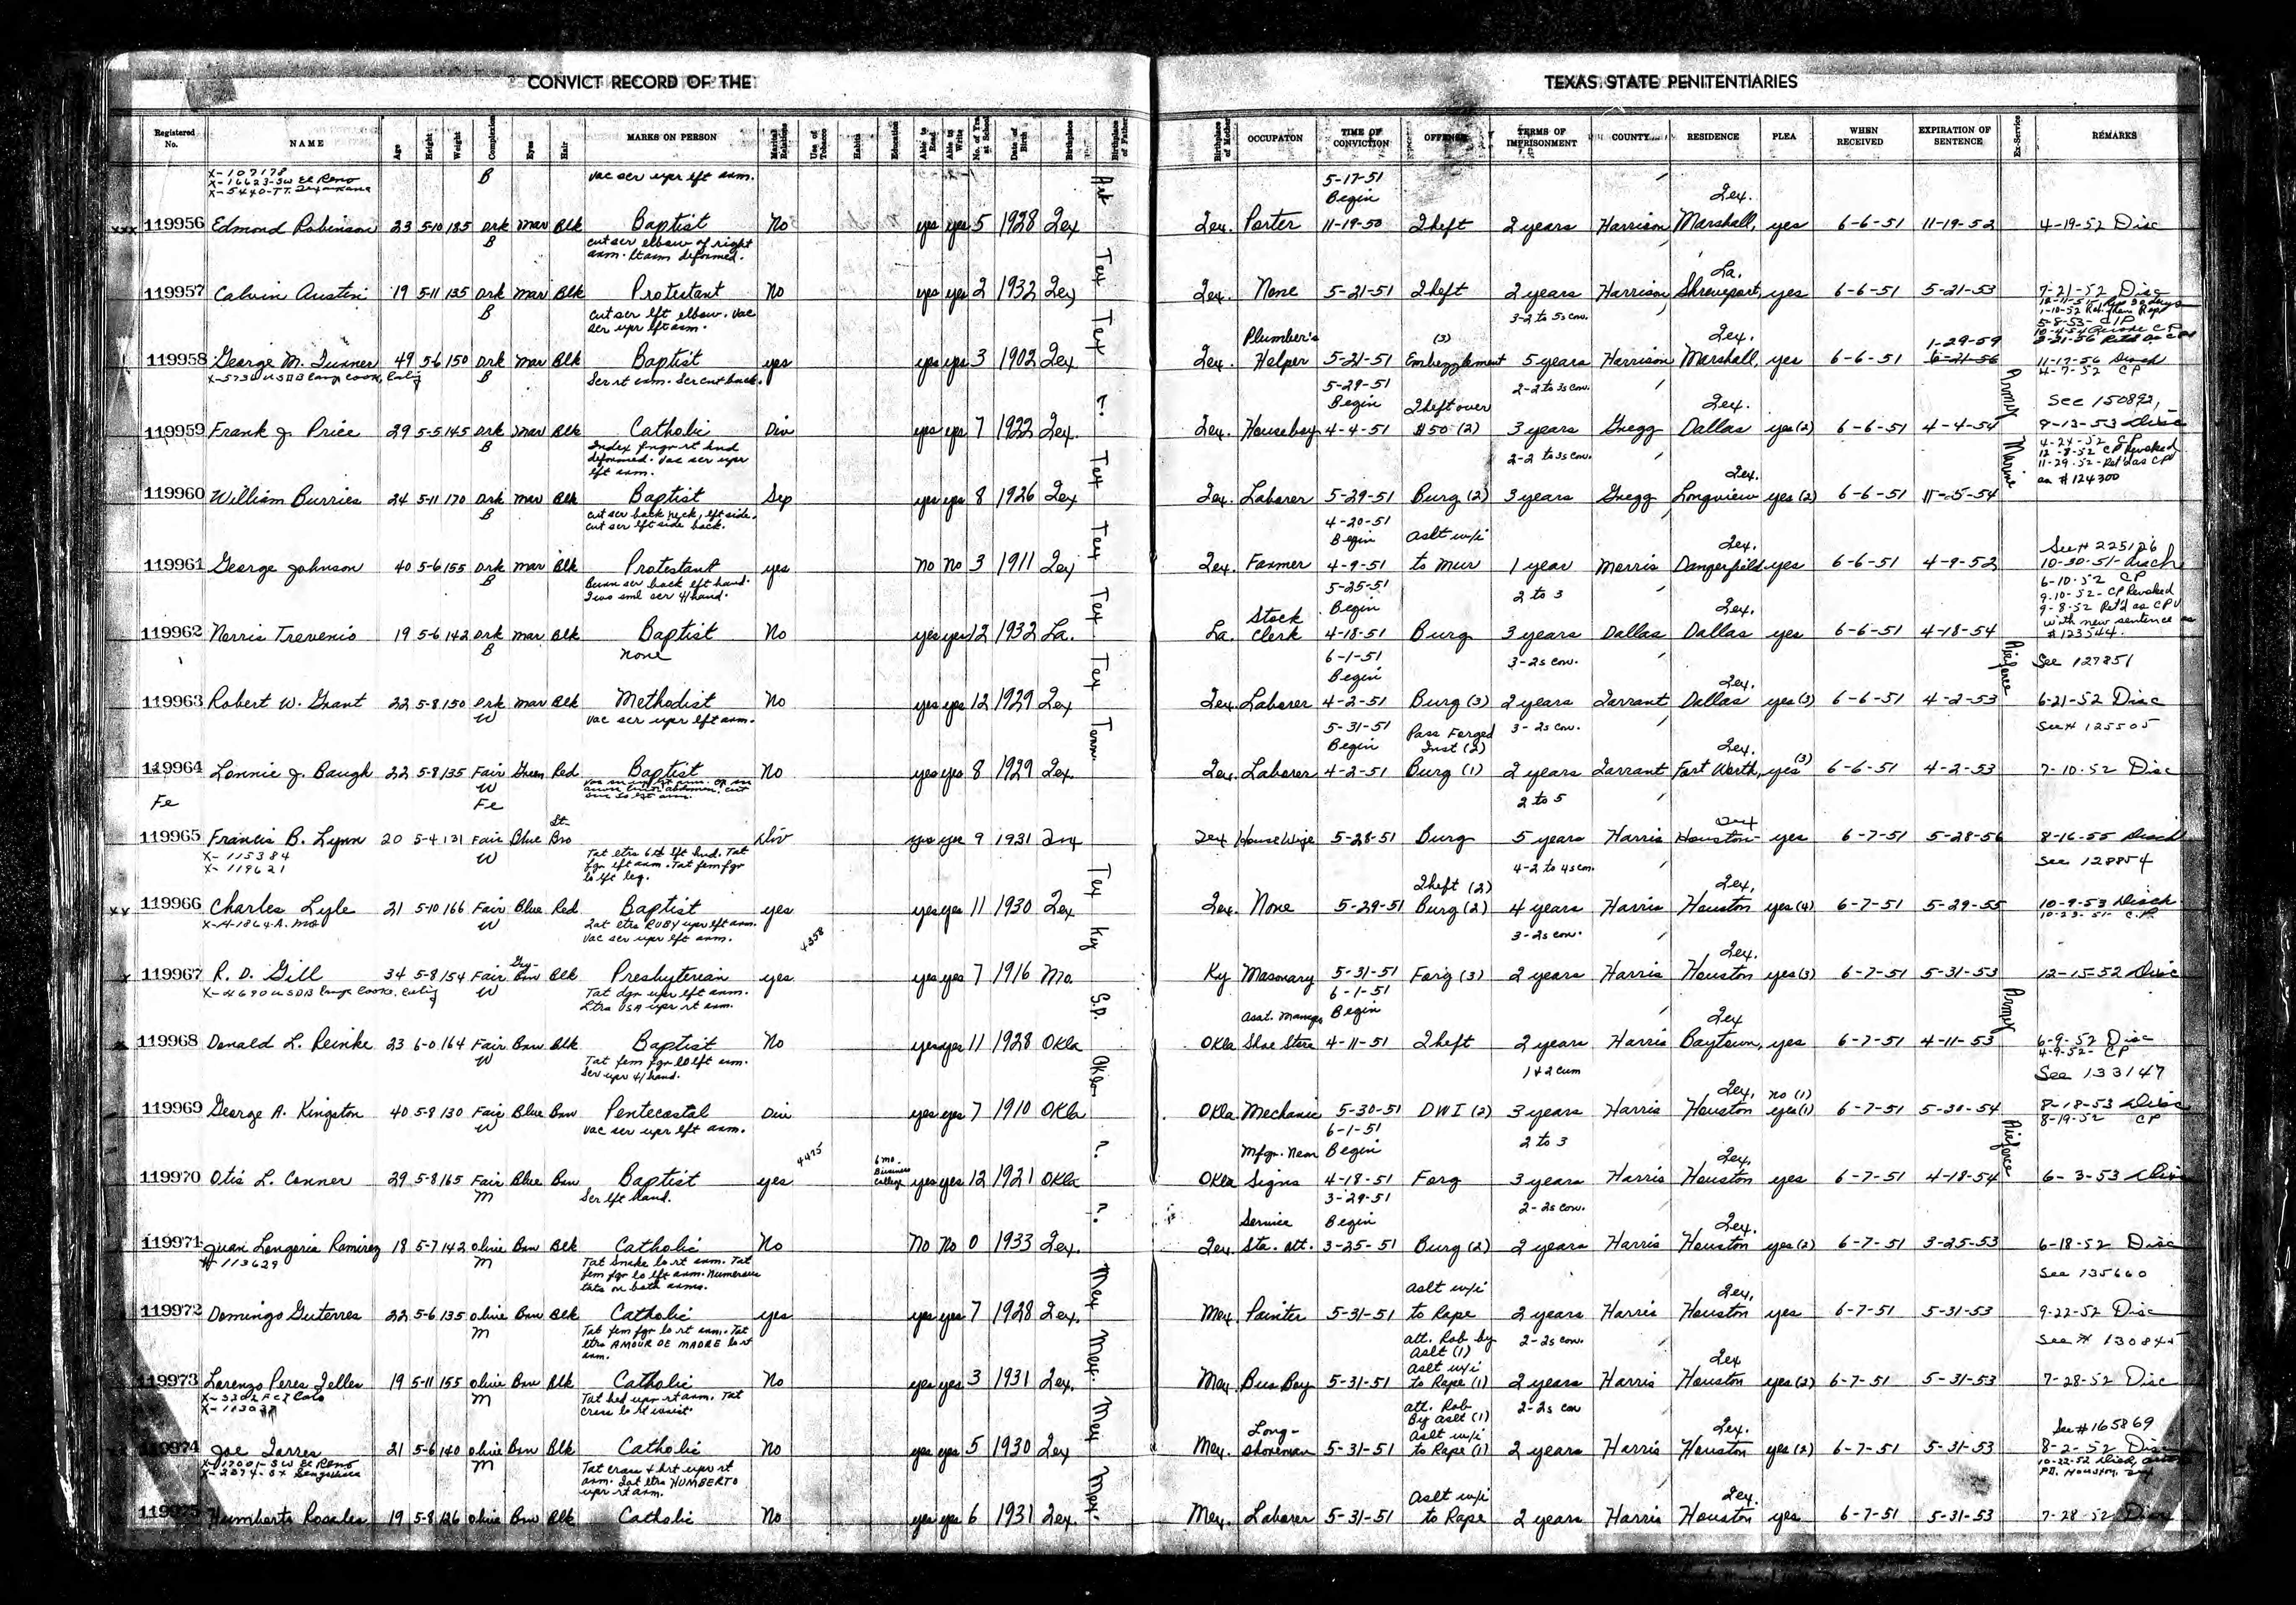 CONVICT RECORD OF THE TEXAS STATE PENITENTIARIES
Registered No. NAME Age Height Weight Complexion Eyes Hair MARKS ON PERSON Marital Relations Use of Tobacco Habits Education Able to Read Able to Write No. of Yrs at School Date of Birth Birthplace Birthplace of Father Birthplace of Mother OCCUPATON TIME OF CONVICTION OFFENSE TERMS OF IMPRISONMENT COUNTY RESIDENCE PLEA WHEN RECEIVED EXPIRATION OF SENTENCE Ex-Service REMARKS
X-107178 B Vac scr upr lft arm. 5-17-51
X-16623-SW El Reno Begin Tex.
X-5440-TT. Texarkana Ark
xxx 119956 Edmond Robinson 23 5-10 185 Drk Mar Blk Baptist No yes yes 5 1928 Tex Tex. Porter 11-19-50 Theft 2 years Harrison Marshall, yes 6-6-51 11-19-52 4-19-52 Disc
B cut scr elbow of right
arm. lt arm deformed. Tex La.
119957 Calvin Austin 19 5-11 135 Drk Mar Blk Protestant No yes yes 2 1932 Tex Tex. None 5-21-51 Theft 2 years Harrison Shreveport, yes 6-6-51 5-21-53 7-21-52 Disc
B cut scr lft elbow. Vac 3-2 to 5s con.
scr upr lft arm. Tex Plumber's (3) Tex. 1-29-59 5-8-53- CIP
119958 George M. Turner 49 5-6 150 Drk Mar Blk Baptist yes yes yes 3 1902 Tex. Tex. Helper 5-21-51 Embezzlement 5 years Harrison Marshall, yes 6-6-51 6-21-56 11-17-56 Disch
B Scr rt arm. Scr cut back. 5-29-51 2-2 to 3s con. 4-7-52 CP
? Begin Theft over Tex. Army See 150892,
119959 Frank J. Price 29 5-5 145 Drk Mar Blk Catholic Div yes yes 7 1922 Tex. Tex. Houseboy 4-4-51 $50 (2) 3 years Gregg Dallas yes(2) 6-6-51 4-4-54 9-13-53 Disc
B Index fngr rt hnd 2-2 to 3s con. Marine 4-24-52 CP
deformed. Vac scr upr 12-8-52 CP Revoked
lft arm. Tex Tex. 11-29-52-Ret'd as CP
119960 William Burries 24 5-11 170 Drk Mar Blk Baptist Sep yes yes 8 1926 Tex Tex. Laborer 5-29-51 Burg (2) 3 years Gregg Longview yes(2) 6-6-51 11-5-54 as #124300
B cut scr back neck, lft side. 4-20-51
cut scr lft side back. Tex Begin Aslt w/i Tex. See # 225126
119961 George Johnson 40 5-6 155 Drk Mar Blk Protestant yes No No 3 1911 Tex Tex. Farmer 4-9-51 to mur 1 year Morris Dangerfild yes 6-6-51 4-9-52 10-30-51-Disch
B Burn scr back lft hand. 5-25-51 2 to 3 6-10-52 CP
Two sml scr 4/hand. Tex Stock Begin Tex. 9-10-52-CP Revoked
9-8-52 Ret'd as CPV
119962 Norris Trevenio 19 5-6 142 Drk Mar Blk Baptist No yes yes 12 1932 La. La. Clerk 4-18-51 Burg 3 years Dallas Dallas yes 6-6-51 4-18-54 with new sentence as #123544.
B None 6-1-51 3-2s con. See 127851
Tex Begin Tex. Airforce
119963 Robert W. Grant 22 5-8 150 Drk Mar Blk Methodist No yes yes 12 1929 Tex Tex. Laborer 4-2-51 Burg (3) 2 years Tarrant Dallas yes(3) 6-6-51 4-2-53 6-21-52 Disc
W Vac scr upr lft arm. 5-31-51 Pass Forged 3-2s con. See # 125505
Tenn Begin Inst (2) Tex.
119964 Lonnie J. Baugh 22 5-8 135 Fair Green Red Baptist No yes yes 8 1929 Tex. Tex. Laborer 4-2-51 Burg (1) 2 years Tarrant Fort Worth, yes(3) 6-6-51 4-2-53 7-10-52 Disc
Fe W 2 to 5
Fe Lt- Tex
119965 Francis B. Lynn 20 5-4 131 Fair Blue Bro Div yes yes 9 1931 Tex Tex House Wife 5-28-51 Burg 5 years Harris Houston- yes 6-7-51 5-28-56 8-16-55 Disch
X-115384 W Tat fgr lft arm. Tat fem fgr 4-2 to 4s con. See 128854
X-119621 lo lft leg. Tex Theft (2) Tex.
xx 119966 Charles Lyle 21 5-10 166 Fair Blue Red Baptist yes yes yes 11 1930 Tex Tex. None 5-29-51 Burg (2) 4 years Harris Houston yes(4) 6-7-51 5-29-55 10-9-53 Disch
W Tat ltrs RUBY upr lft arm. 3-2s con. 10-23-51- C.P.
Vac scr upr lft arm. 4358 Ky Tex.
Gry-
x 119967 R. D. Gill 34 5-8 154 Fair Bnw Blk Presbyterian yes yes yes 7 1916 Mo. Ky Masonary 5-31-51 Forg (3) 2 years Harris Houston yes(3) 6-7-51 5-31-53 12-15-52 Disc
W Tat dgr upr lft arm. 6-1-51
Ltrs USA upr rt arm. S.D. Asst. Manager Begin Tex Army
119968 Donald L. Reinke 23 6-0 164 Fair Brw Blk Baptist No yes yes 11 1928 Okla Okla Shoe Store 4-11-51 Theft 2 years Harris Baytown, yes 6-7-51 4-11-53 6-9-52 Disc
W Tat fem fgr lo lft arm. 1 & 2 cum 4-9-52- CP
Scr upr 4/hand. Okla Tex, no (1) See 133147
119969 George A. Kingston 40 5-8 130 Fair Blue Bnw Pentecostal Div yes yes 7 1910 Okla Okla Mechanic 5-30-51 DWI (2) 3 years Harris Houston yes(1) 6-7-51 5-30-54 8-18-53 Disc
W Vac scr upr lft arm. 6-1-51 2 to 3 8-19-52 CP
4475 6 mo. Business College ? Mfgr. Neon Begin Tex. Airforce
119970 Otis L. Conner 29 5-8 165 Fair Blue Bnw Baptist yes yes yes 12 1921 Okla Okla Signs 4-18-51 Forg 3 years Harris Houston yes 6-7-51 4-18-54 6-3-53 Disc
M Scr lft hand. 3-29-51 2-2s con.
? Service Begin Tex.
119971 Juan Longoria Ramirez 18 5-7 142 Olive Brw Blk Catholic No No No 0 1933 Tex. Tex. Sta. Att. 3-25-51 Burg (2) 2 years Harris Houston yes(2) 6-7-51 3-25-53 6-18-52 Disc
# 113629 M Tat snake lo rt arm. Tat See 135660
fem fgr lo lft arm. Numerous Aslt w/i
tats on both arms. Mex Tex.
119972 Domingo Guterres 22 5-6 135 Olive Brw Blk Catholic yes yes yes 7 1928 Tex. Mex. Painter 5-31-51 to Rape 2 years Harris Houston yes 6-7-51 5-31-53 9-22-52 Disc
M Tat fem fgr lo rt arm. Tat Att. Rob by 2-2s con. See # 130845
ltrs AMOUR DE MADRE lo rt Aslt (1)
arm. Mex. Aslt w/i Tex
119973 Lorenzo Peres Telles 19 5-11 155 Olive Brw Blk Catholic No yes yes 3 1931 Tex. Mex. Bus Boy 5-31-51 to Rape (1) 2 years Harris Houston yes(2) 6-7-51 5-31-53 7-28-52 Disc
M Tat hed upr rt arm. Tat Att. Rob 2-2s con
cross lo rt wrist. Mex Long- By Aslt (1) Tex. See #165869
Aslt w/i
119974 Joe Torres 21 5-6 140 Olive Brw Blk Catholic No yes yes 5 1930 Tex Mex. shoreman 5-31-51 to Rape (1) 2 years Harris Houston yes(2) 6-7-51 5-31-53 8-2-52 Disc
X-17001-SW El Reno M Tat cross & hrt upr rt
arm. Tat ltrs HUMBERTO P.D. Houston, Tex
upr rt arm. Mex. Aslt w/i Tex.
119975 Humberto Rosales 19 5-8 126 Olive Brw Blk Catholic No yes yes 6 1931 Tex. Mex. Laborer 5-31-51 to Rape 2 years Harris Houston yes 6-7-51 5-31-53 7-28-52 Disc